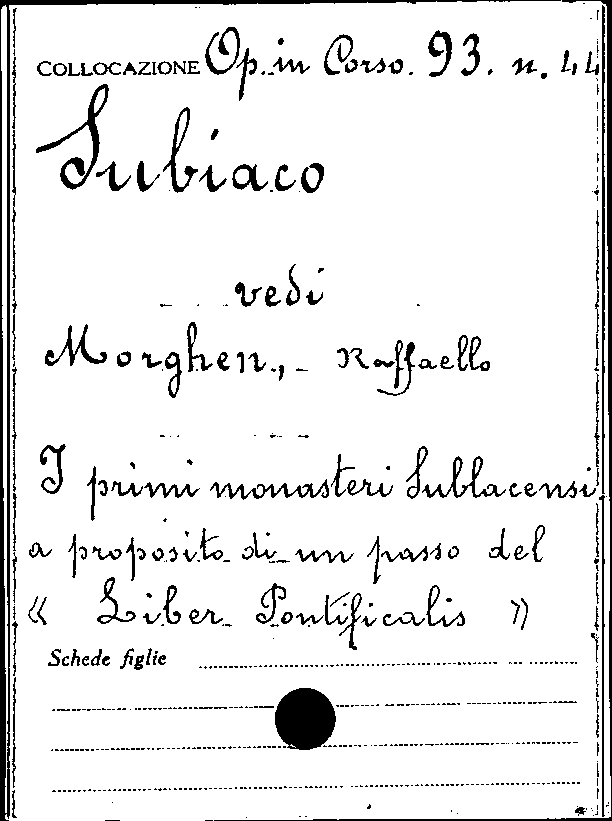 COLLOCAZIONE Op. in Corso. 93. n. 44
Subiaco
vedi
Morghen, Raffaello
I primi monasteri Sublacensi
a proposito di un passo del
« Liber Pontificalis »
Schede figlie